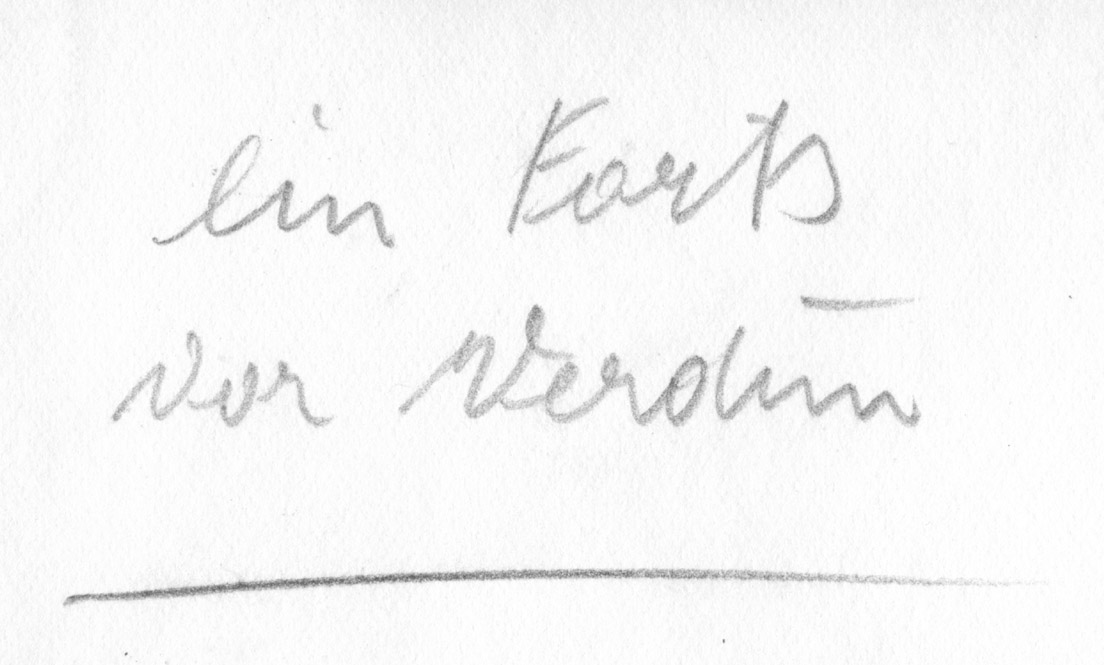 ein Forts
vor Verdun